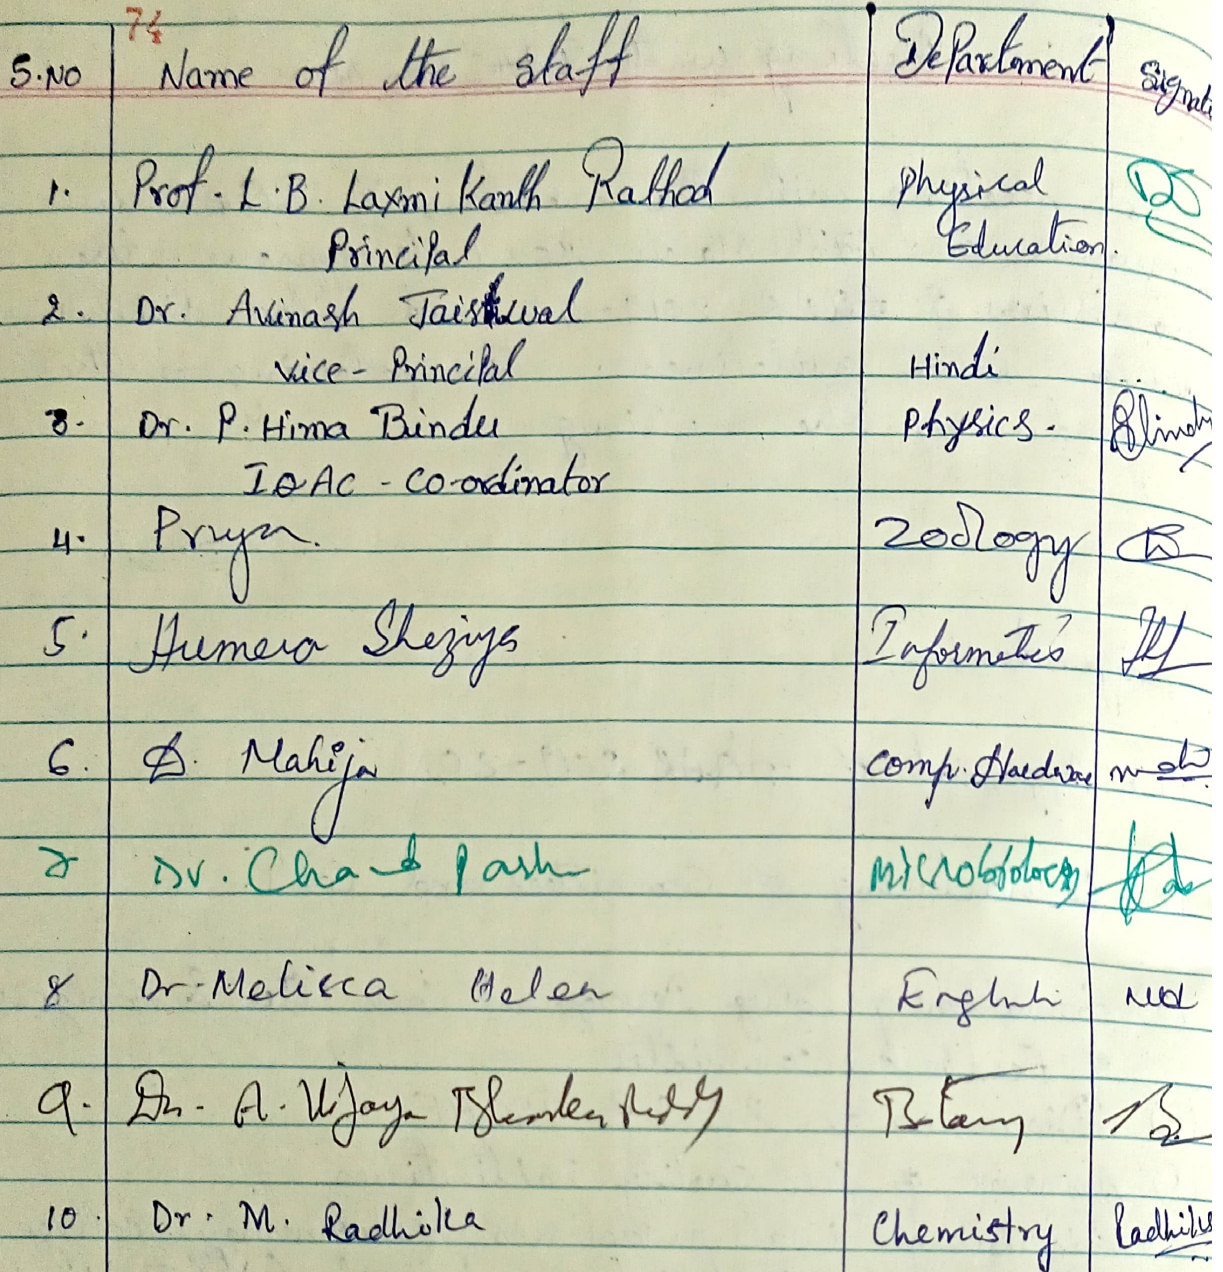 74
S.NO Name of the staff Department Signatu
1. Prof. L.B. Laxmi Kanth Rathod Physical
Principal Education.
2. Dr. Avinash Jaiswal
Vice-Principal Hindi
3. Dr. P. Hima Bindu Physics. Bindu
IQAC - Co-ordinator
4. Priya. Zoology
5. Humera Sheziya Informatics
6. D. Mahija Comp. Hardware
7 Dr. Chand Pash Microbiology
8 Dr. Melissa Helen English
9. Dr. A. Vijaya Bhasker Reddy Botany
10. Dr. M. Radhika Chemistry Radhika